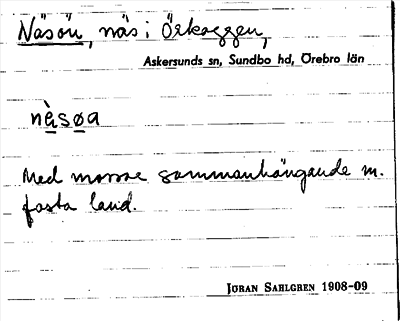 Näsön, näs i Örkaggen,
Askersunds sn, Sundbo hd, Örebro län
nä̀søa
Med mosse sammanhängande m.
fasta land.
Jöran Sahlgren 1908-09